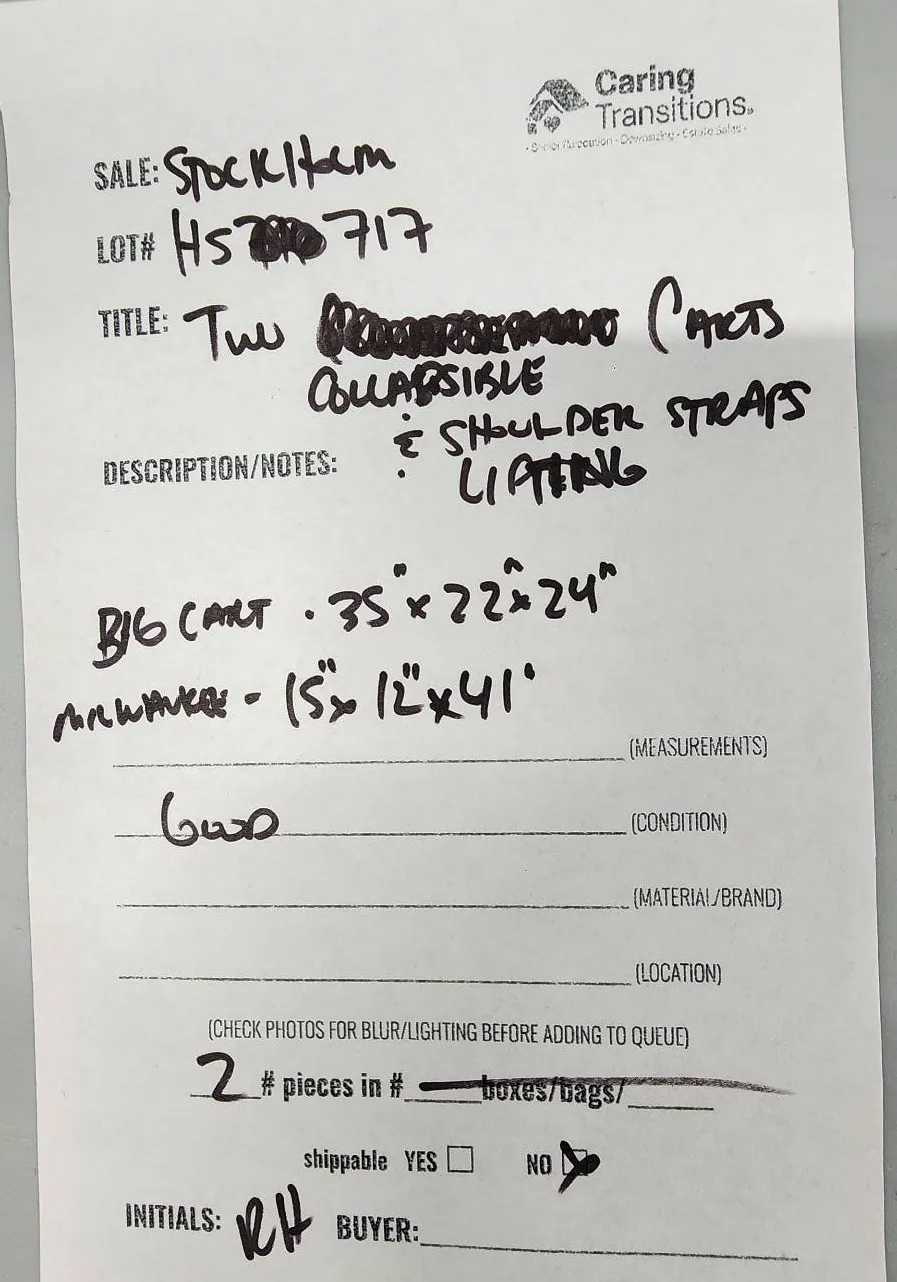 Caring
Transitions®
SALE: StockHolm
LOT# HS 717
TITLE: Two CARTS
COLLAPSIBLE
& SHOULDER STRAPS
DESCRIPTION/NOTES:
LIFTING
BIG CART • 35" x 22" x 24"
MILWAUKEE - 15" x 12" x 41"
(MEASUREMENTS)
GOOD (CONDITION)
(MATERIAL/BRAND)
(LOCATION)
(CHECK PHOTOS FOR BLUR/LIGHTING BEFORE ADDING TO QUEUE)
2 # pieces in # boxes/bags/
shippable YES NO
INITIALS: RH BUYER: